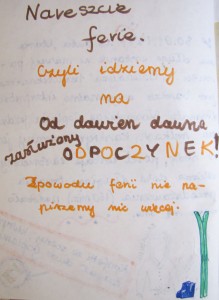 Nareszcie
ferie.
Czyli idziemy
na
Od dawien dawna
zasłużony
ODPOCZYNEK!
Zpowodu ferii nie na-
piszemy nic więcej.